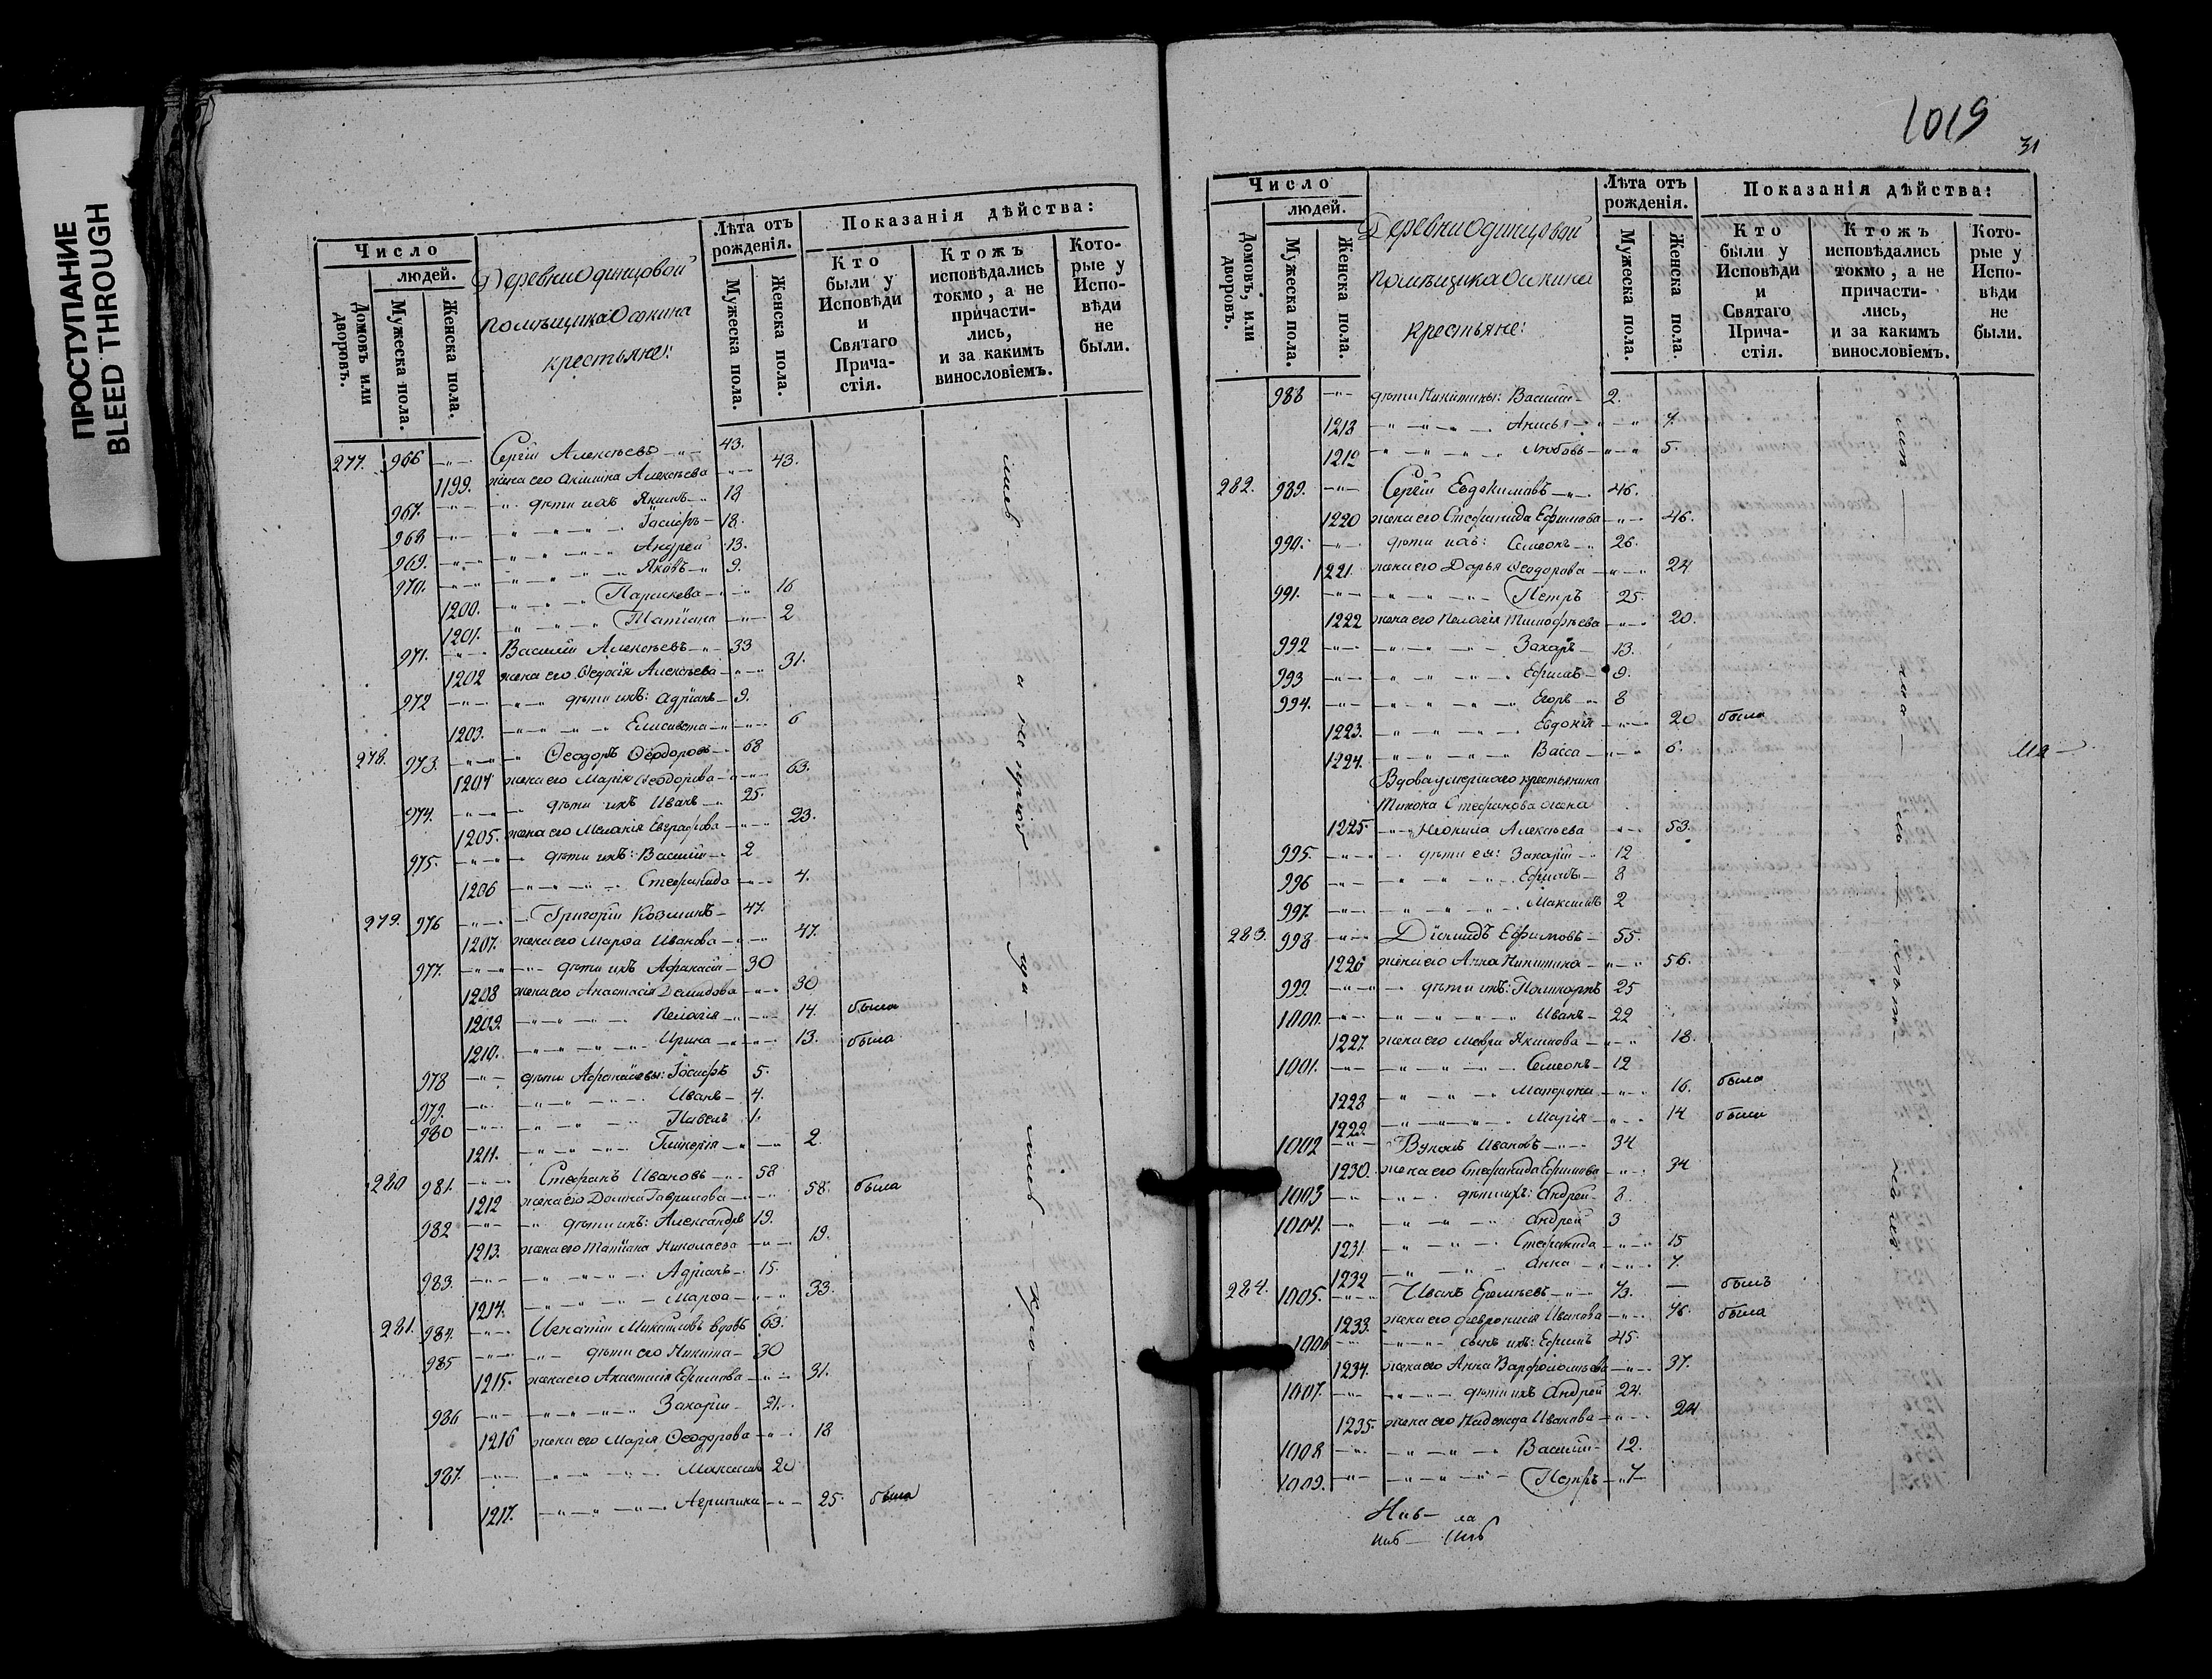 ПРОСТУПАНИЕ
BLEED THROUGH
Число
людей.
Домовъ или дворовъ.
Мужеска пола.
Женска пола.
Деревни Одинцовой
помѣщика Осокина
крестьяне:
Лѣта отъ рожденія.
Мужеска пола.
Женска пола.
Показанія дѣйства:
Кто были у Исповѣди и Святаго Причастія.
Ктожъ исповѣдались токмо, а не причастились, и за какимъ винословіемъ.
Которые у Исповѣди не были.
277. 966 Сергій Алексѣевъ 43.
1199. жена его Алексѣева 43.
967. дѣти ихъ Якимъ 18
968 Іосифъ 18.
969. Андрей 13.
970. Яковъ 9.
1200. Параскева 16
1201. Татіана 2
971. Василій Алексѣевъ 33
1202 жена его Ѳедосія Алексѣева 31.
972 дѣти ихъ: Адріанъ 9.
1203. Елисавета 6
278. 973. Ѳеодоръ Ѳеодоровъ 68
1204 жена его Марія Ѳеодорова 63.
974. дѣти ихъ Иванъ 25.
1205. жена его Меланія Евграфова 23.
975. дѣти ихъ: Василій 2
1206 Стефанида 4.
279. 976 Григорій Козминъ 47.
1207. жена его Марѳа Иванова 47.
977. дѣти ихъ Афанасій 30
1208 жена его Анастасія Демидова 30
1209. Пелагія 14. была
1210. Ирина 13. была
978 дѣти Афанасьевы: Іосифъ 5.
979. Иванъ 4.
980 Павелъ 1.
1211. Гликерія 2.
280 981. Стефанъ Ивановъ 58
1212 жена его Домна Гаврилова 58. была
982 дѣти ихъ: Александръ 19.
1213. жена его Татіана Николаева 19.
983. Адріанъ 15.
1214. Марѳа 33.
281. 984. Игнатій Михайловъ вдовъ 63.
985 дѣти его Никита 30
1215. жена его Анастасія Ефимова 31.
986 Захарій 21.
1216 жена его Марія Ѳеодорова 18
987. Максимъ 20
1217. Агрипина 25. была
1019
31
Число
людей.
Домовъ, или дворовъ.
Мужеска пола.
Женска пола.
Деревни Одинцовой
помѣщика Осокина
крестьяне:
Лѣта отъ рожденія.
Мужеска пола.
Женска пола.
Показанія дѣйства:
Кто были у Исповѣди и Святаго Причастія.
Ктожъ исповѣдались токмо, а не причастились, и за какимъ винословіемъ.
Которые у Исповѣди не были.
988 дѣти Никитины: Василій 2.
1218 Анисья 7.
1219 Любовь 5.
282. 989. Сергій Евдокимовъ 46.
1220 жена его Стефанида Ефимова 46.
990. дѣти ихъ: Симеонъ 26.
1221. жена его Дарья Ѳеодорова 24
991. Петръ 25.
1222 жена его Пелагія Тимофѣева 20.
992 Захаръ 13.
993 Ефимъ 9.
994. Егоръ 8
1223. Евдокія 20 была
1224. Васса 6.
Вдова умершаго крестьянина
Тихона Стефанова жена
1225. Неонила Алексѣева 53.
995. дѣти ея: Захарій 12
996 Ефимъ 8
997. Максимъ 2
283. 998. Діомидъ Ефимовъ 55.
1226 жена его Анна Никитина 56.
999. дѣти ихъ: Поликарпъ 25
1000. Иванъ 22
1227. жена его Мавра Якимова 18.
1001. Симеонъ 12
1228 Матрона 16. была
1229. Марія 14 была
1002 Вуколъ Ивановъ 34
1230. жена его Стефанида Ефимова 34
1003 дѣти ихъ: Андрей 8.
1004. Андрей 3
1231 Стефанида 15
1232 Анна 7.
284. 1005. Иванъ Еремѣевъ 73. былъ
1233. жена его Февронія Иванова 76. была
1006 сынъ ихъ: Ефимъ 45.
1234. жена его Анна Варфоломѣева 37.
1007. дѣти ихъ Андрей 24.
1235. жена его Надежда Иванова 24
1008 Василій 12.
1009. Петръ 7